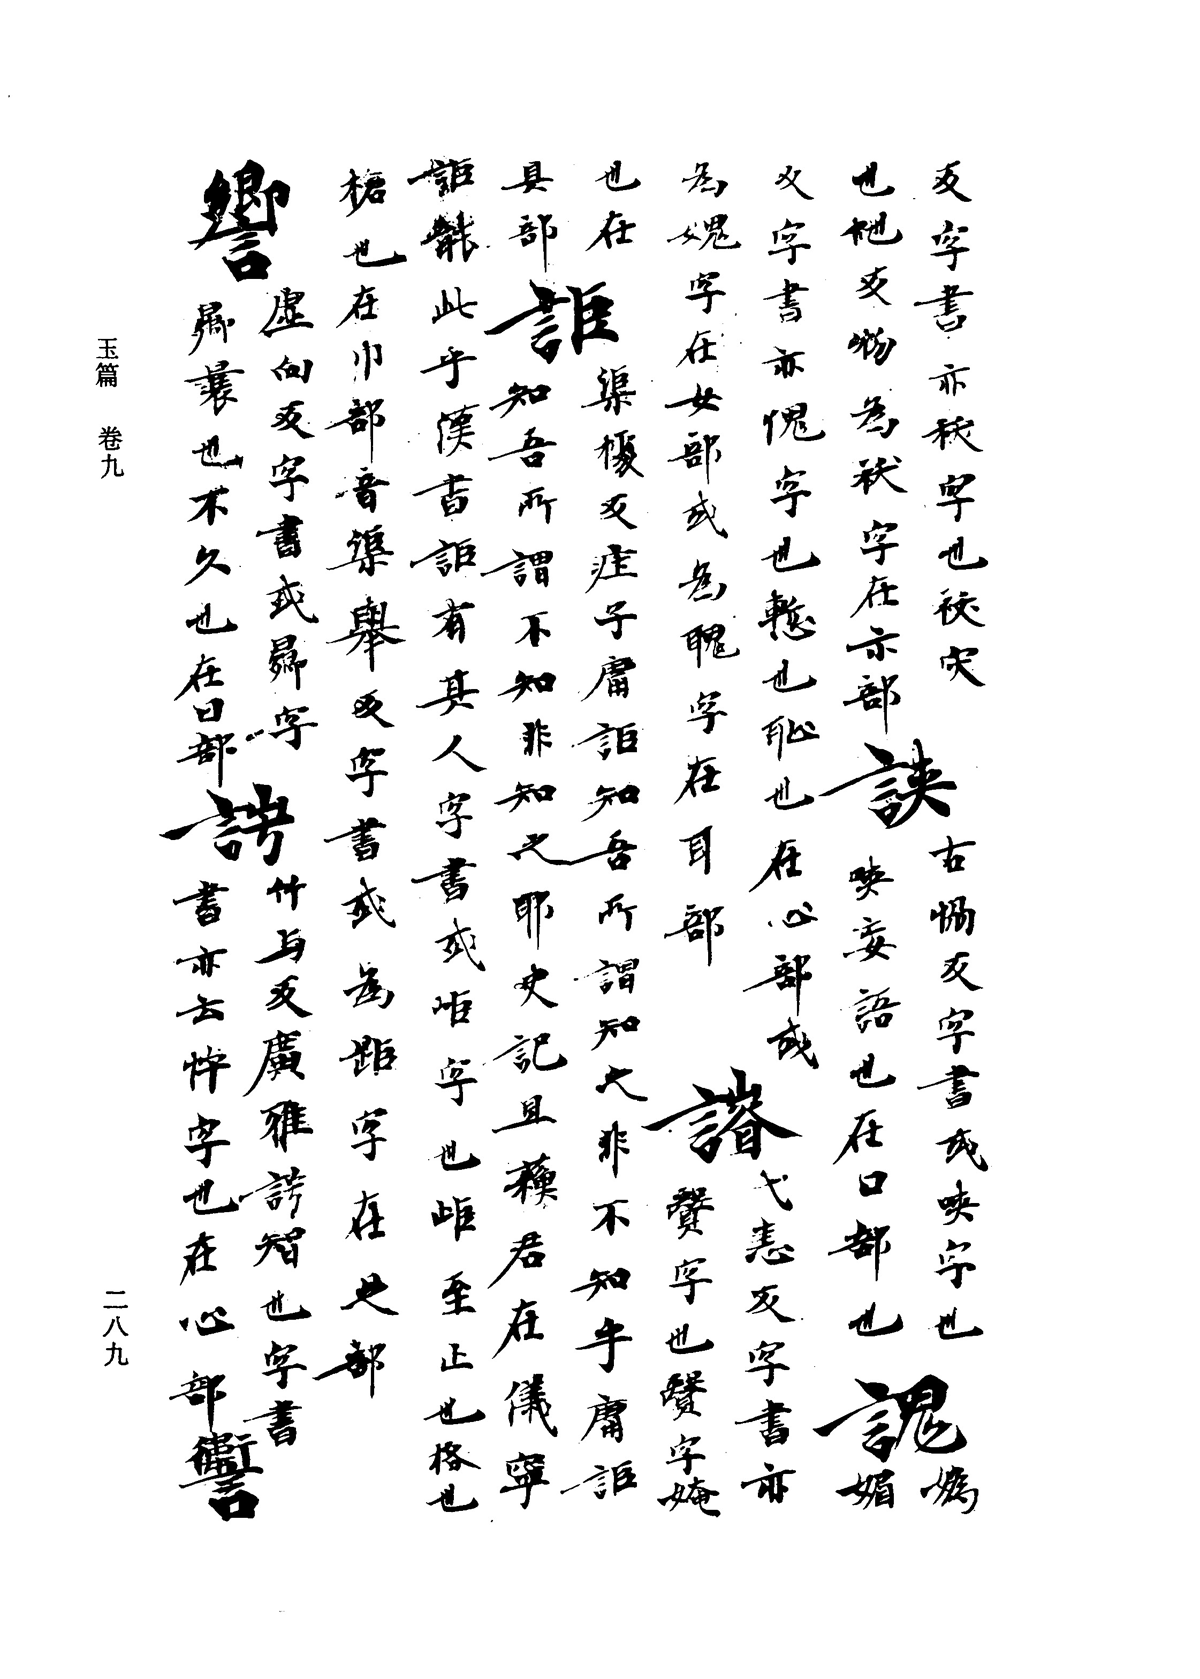 反字書亦祅字也祅灾
也地反物為祅字在示部
詇
古惕反字書或咉字也
咉妄語也在口部也
謉
媿
媚
反字書亦愧字也慙也恥也在心部或
為媿字在女部或為聭字在耳部
譖
弋恚反字書亦
贀字也贀字婄
也在
具部
詎
渠據反疰子庸詎知吾所謂知之非不知乎庸詎
知吾所謂不知非知之耶史記且蘓君在儀寧
詎能此乎漢書詎有其人字書或岠字也岠至止也格也
槍也在巾部音渠舉反字書或為距字在足部
響
虛向反字書或曏字
曏曩也不久也在日部
䛭
竹与反廣雅䛭智也字書
書亦云㤖字也在心部
讏
玉篇　卷九
二八九